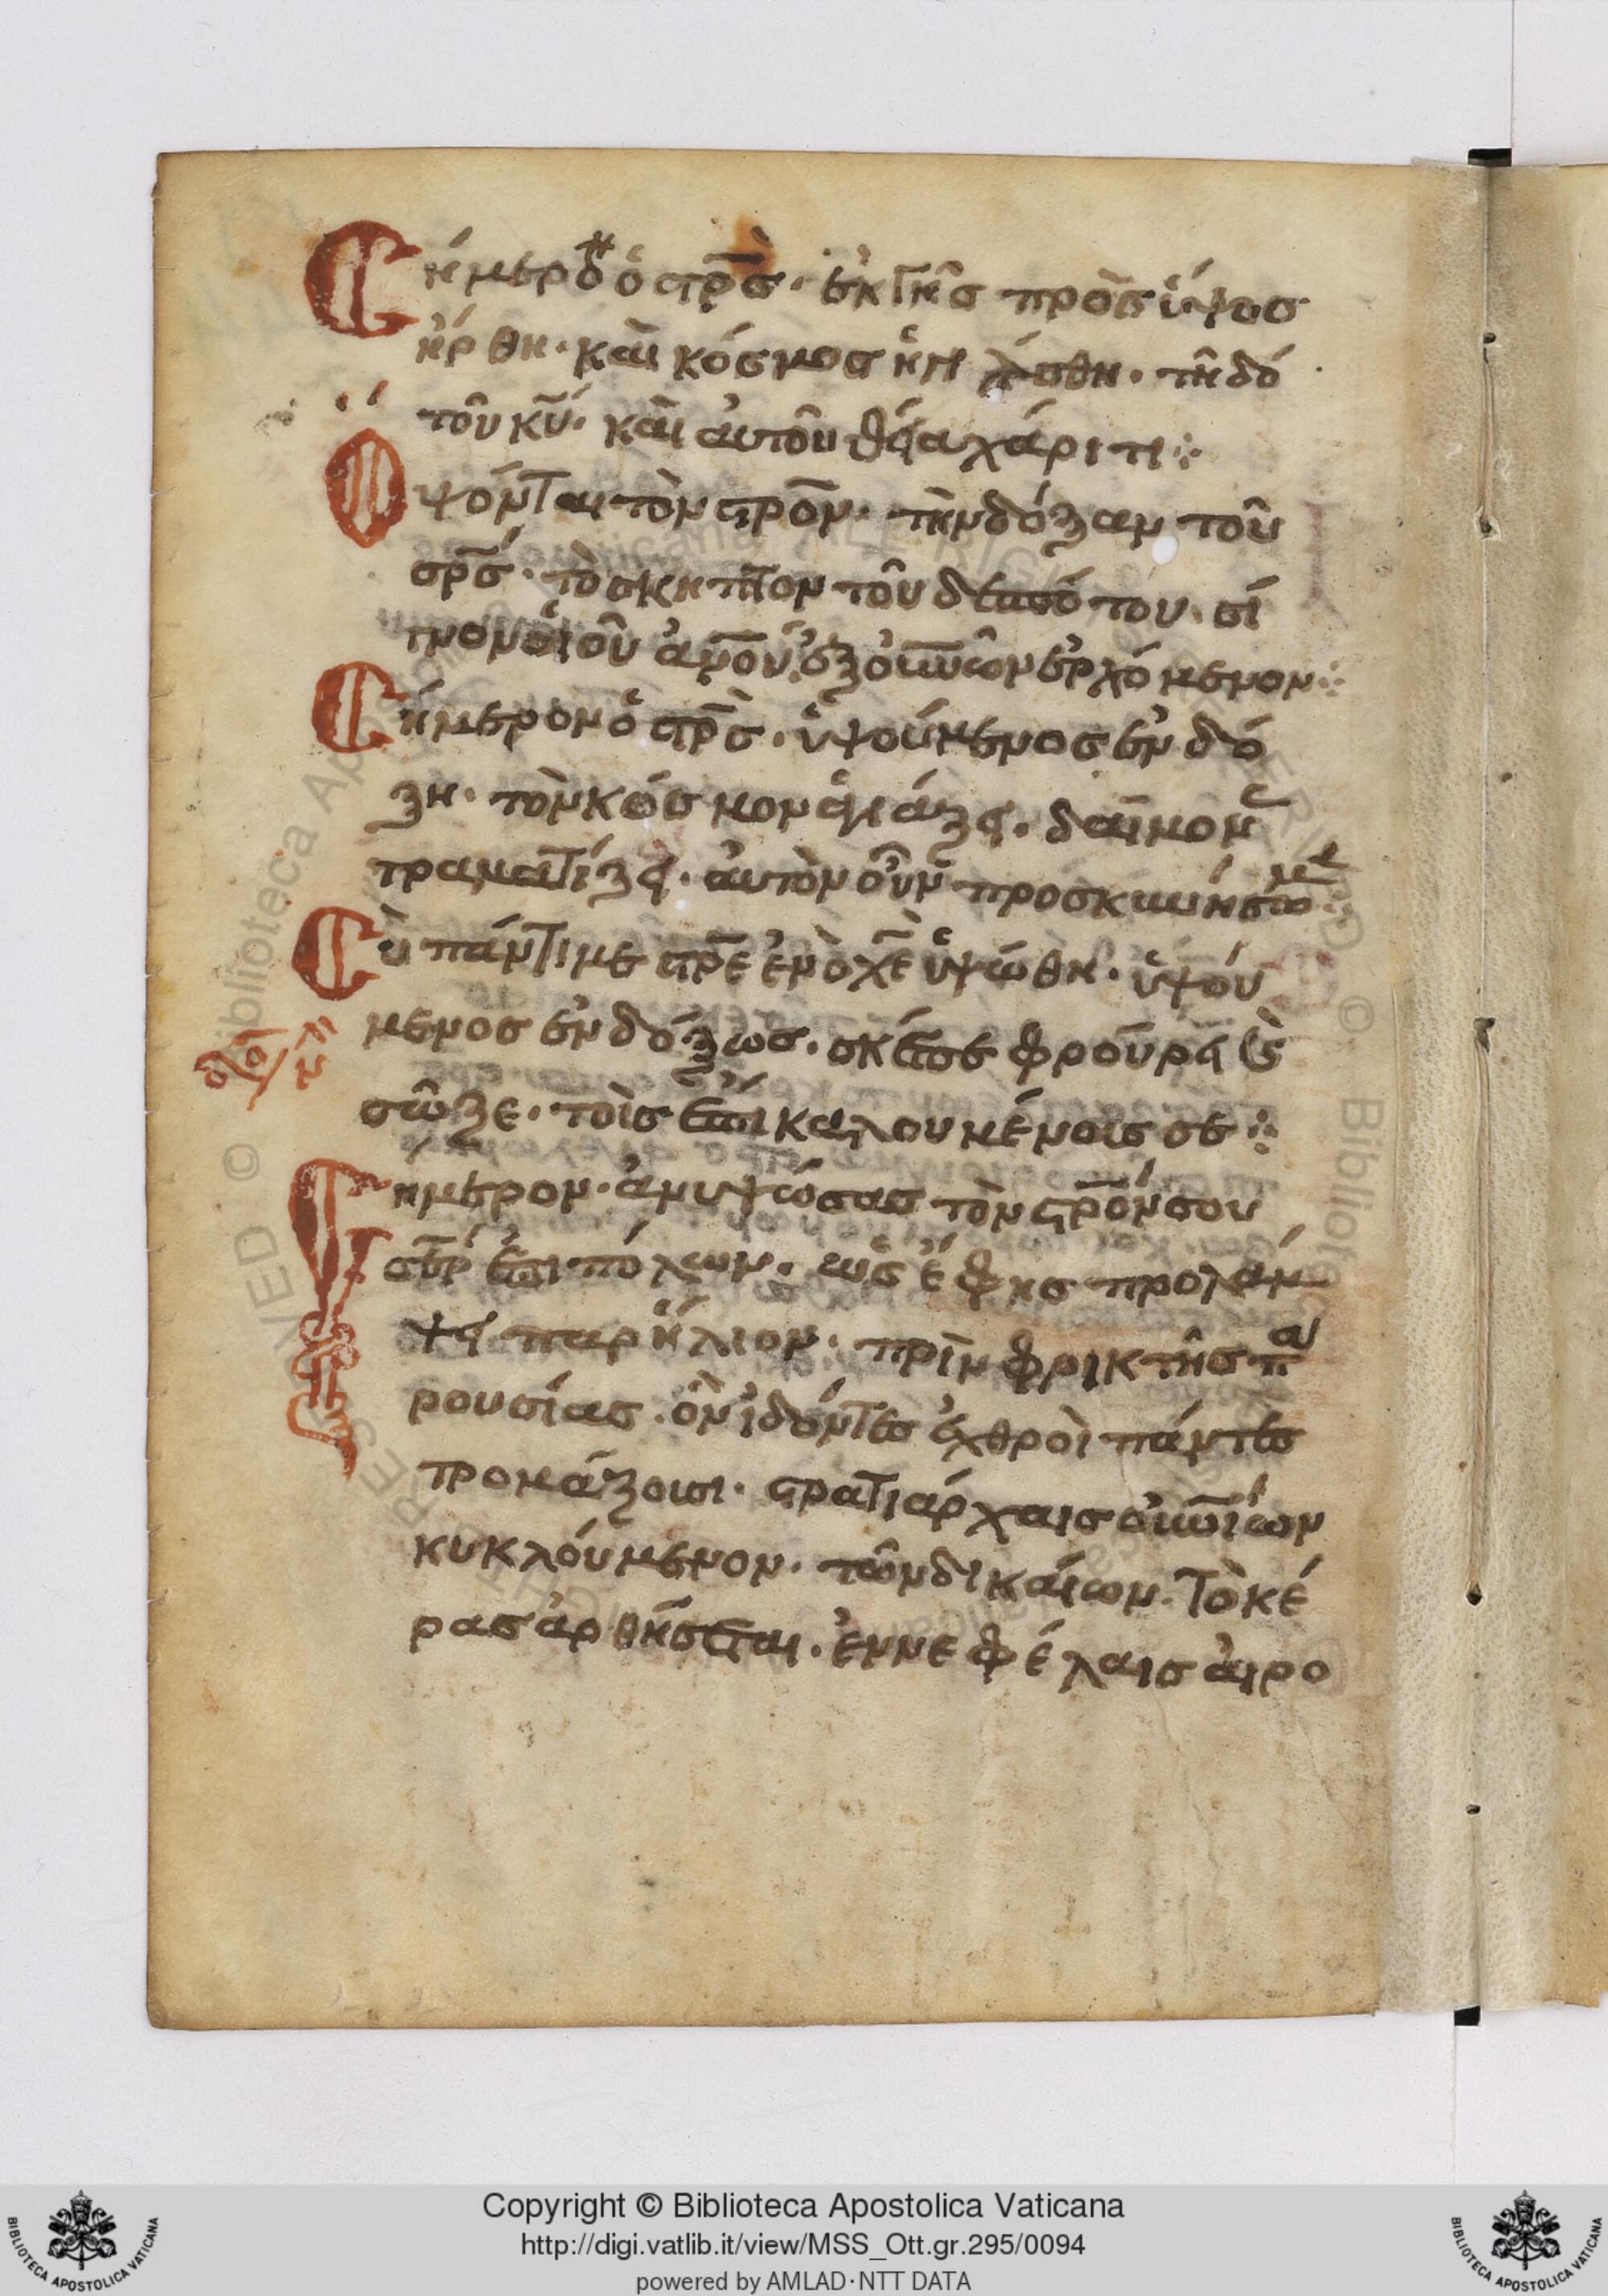 Σήμερον ὁ στρ̅ο̅ς· ἐκ γῆς πρὸς ὕψος
ἤρθη· καὶ κόσμος ἡγιάσθη· τῆ δό
τοῦ κυ̅· καὶ αὐτοῦ θεία χάριτι⁘
Ὀψόνται τὸν στρο̅ν· τὴν δόξαν τοῦ
στρ̅ς· τὸ σκῆπτρον τοῦ δεσπότου· σί
Σήμερον ὁ στρ̅ς· ὑψούμενος ἐν δό
ξη· τὸν κόσμον ἁγιάζει· δαίμον
τραματίζει· αὐτὸν οὖν προσκυνήσωμε⁘
Σὺ πάντιμε στρ̅ε ἐν ὃ χ̅ε ὑψώθη· ὑψού
μενος ἐνδόξως· σκέπε φρούρει καὶ
σῶζε· τοῖς ἐπικαλουμένοις σε⁘
Σήμερον· ἀνυψώσας τὸν στρο̅ν σου
σ̅ε̅ρ ἐπι πόλων· ὡς ἔφης προλάμ
ψει παρ ἥλιον· πρὶν φρικτῆς πα
ρουσίας· ὃν ἰδόντες ἐχθροὶ πάντες
τρομάξοισι· στρατιάρχαις οὐνίων
κυκλούμενον· τῶν δικαίων· τὸ κέ
ρας ἀρθήσεται· ἐν νεφέλαις αἰρο
Copyright © Biblioteca Apostolica Vaticana
http://digi.vatlib.it/view/MSS_Ott.gr.295/0094
powered by AMLAD·NTT DATA
BIBLIOTECA APOSTOLICA VATICANA
BIBLIOTECA APOSTOLICA VATICANA